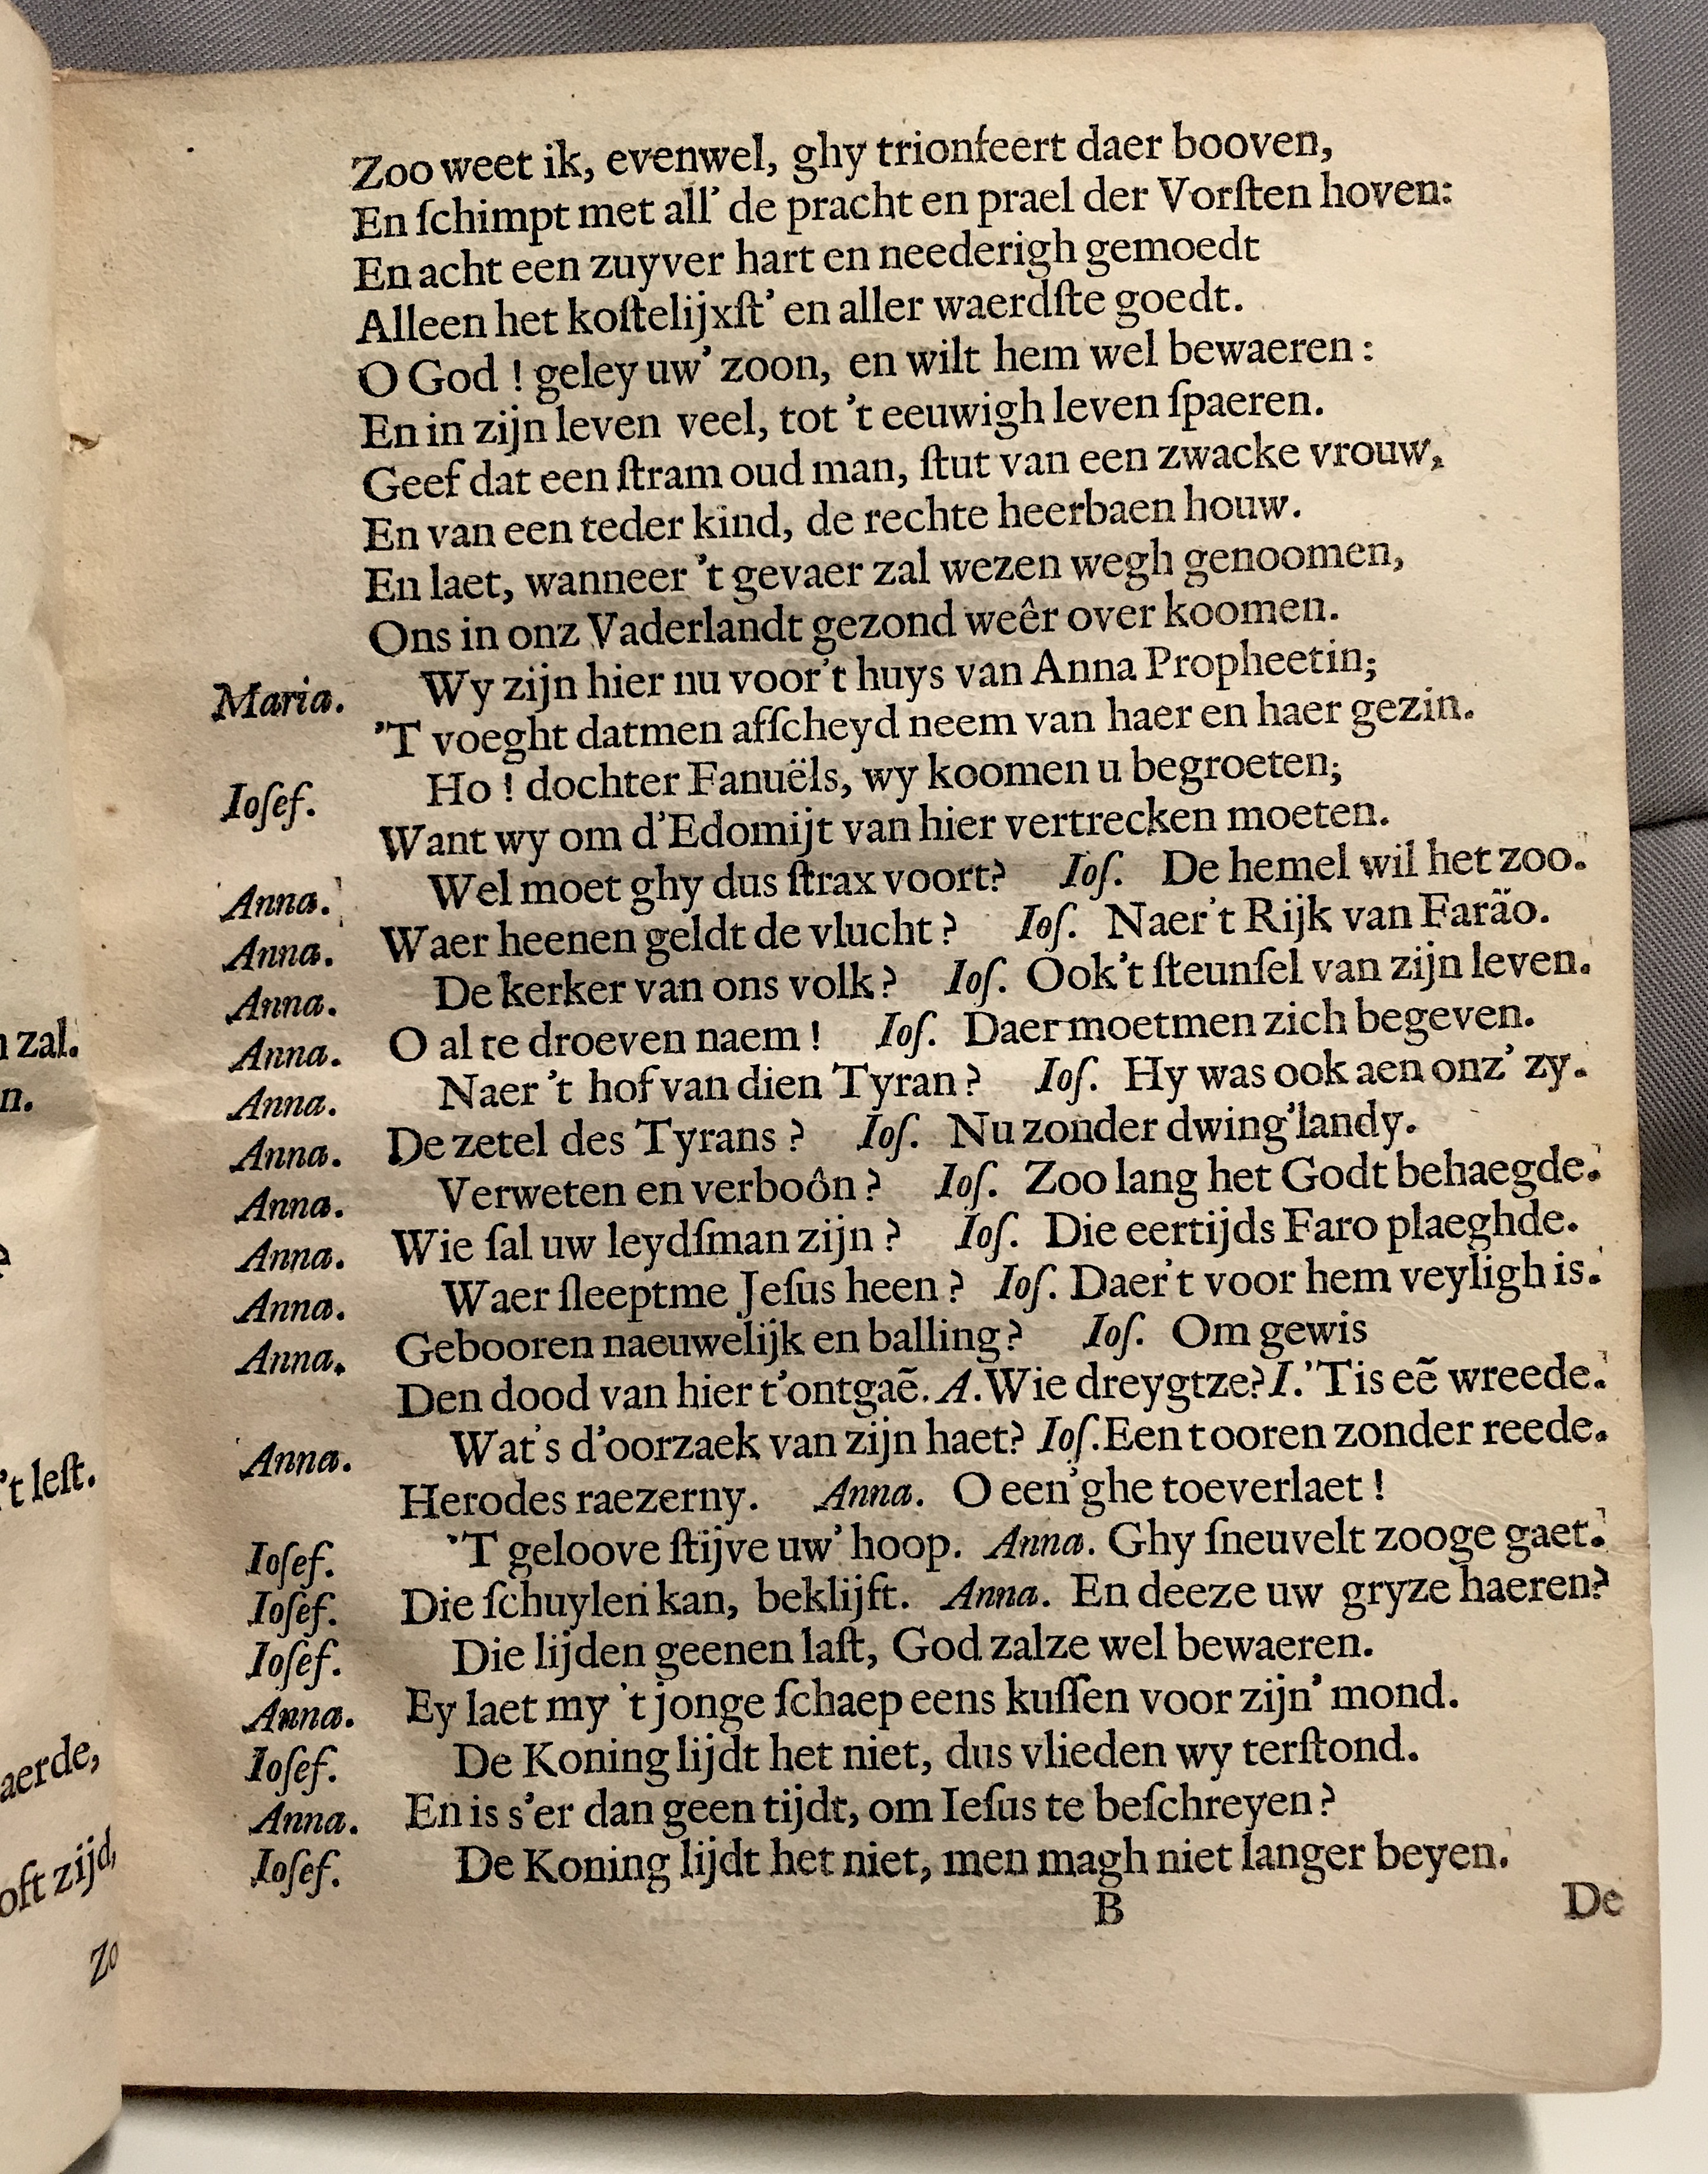 Zoo weet ik, evenwel, ghy trionfeert daer booven,
En ſchimpt met all' de pracht en prael der Vorſten hoven:
En acht een zuyver hart en neederigh gemoedt
Alleen het koſtelijxſt' en aller waerdſte goedt.
O God ! geley uw' zoon, en wilt hem wel bewaeren :
En in zijn leven veel, tot 't eeuwigh leven ſpaeren.
Geef dat een ſtram oud man, ſtut van een zwacke vrouw,
En van een teder kind, de rechte heerbaen houw.
En laet, wanneer 't gevaer zal wezen wegh genoomen,
Ons in onz Vaderlandt gezond weêr over koomen.
Maria. Wy zijn hier nu voor't huys van Anna Propheetin;
'T voeght datmen afſcheyd neem van haer en haer gezin.
Ioſef. Ho ! dochter Fanuëls, wy koomen u begroeten;
Want wy om d'Edomijt van hier vertrecken moeten.
Anna. Wel moet ghy dus ſtrax voort? Ioſ. De hemel wil het zoo.
Anna. Waer heenen geldt de vlucht ? Ioſ. Naer't Rijk van Faräo.
Anna. De kerker van ons volk ? Ioſ. Ook't ſteunſel van zijn leven.
Anna. O al te droeven naem ! Ioſ. Daer moetmen zich begeven.
Anna. Naer 't hof van dien Tyran ? Ioſ. Hy was ook aen onz' zy.
Anna. De zetel des Tyrans ? Ioſ. Nu zonder dwing'landy.
Anna. Verweten en verboôn ? Ioſ. Zoo lang het Godt behaegde.
Anna. Wie ſal uw leydſman zijn ? Ioſ. Die eertijds Faro plaeghde.
Anna. Waer ſleeptme Jeſus heen ? Ioſ. Daer't voor hem veyligh is.
Anna. Gebooren naeuwelijk en balling ? Ioſ. Om gewis
Den dood van hier t'ontgaẽ. A. Wie dreygtze? I. 'Tis eẽ wreede.
Anna. Wat's d'oorzaek van zijn haet? Ioſ. Een tooren zonder reede.
Herodes raezerny. Anna. O een'ghe toeverlaet !
Ioſef. 'T geloove ſtijve uw' hoop. Anna. Ghy ſneuvelt zooge gaet.
Ioſef. Die ſchuylen kan, beklijft. Anna. En deeze uw gryze haeren?
Ioſef. Die lijden geenen laſt, God zalze wel bewaeren.
Anna. Ey laet my 't jonge ſchaep eens kuſſen voor zijn' mond.
Ioſef. De Koning lijdt het niet, dus vlieden wy terſtond.
Anna. En is s'er dan geen tijdt, om Ieſus te beſchreyen ?
Ioſef. De Koning lijdt het niet, men magh niet langer beyen.
B De
zal.
n.
't leſt.
aerde,
oft zijd,
Zo